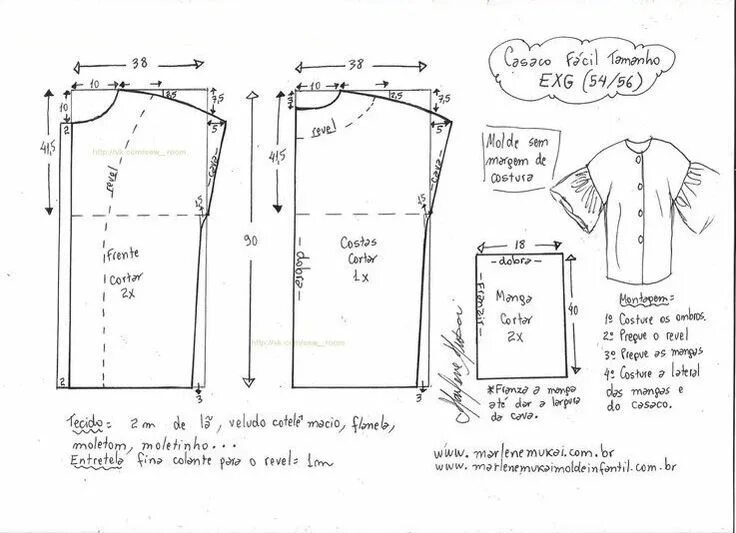 Casaco Fácil Tamanho
EXG (54/56)
38
10
2,5
7,5
10
2
5
41,5
http://vk.com/sew_room
revel
cava
1,5
Frente
Cortar
2x
2
3
90
38
10
2,5
7,5
3
5
41,5
revel
cava
1,5
Costas
Cortar
1x
dobra
http://vk.com/sew_room
3
Molde sem
margem de
costura
18
dobra
Franzir
Manga
Cortar
2x
40
*Franza a manga
até dar a largura
da cava.
Montagem:
1º Costure os ombros.
2º Pregue o revel
3º Pregue as mangas
4º Costure a lateral
das mangas e
do casaco.
Marlene Mukai
Tecido: 2 m de lã, veludo cotelê macio, flanela,
moletom, moletinho...
Entretela fina colante para o revel = 1m
www.marlenemukai.com.br
www.marlenemukaimoldeinfantil.com.br